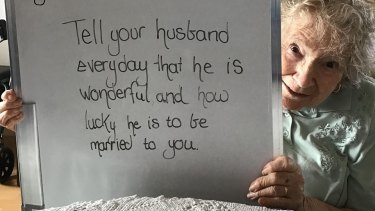 Tell your husband
everyday that he is
wonderful and how
lucky he is to be
married to you.